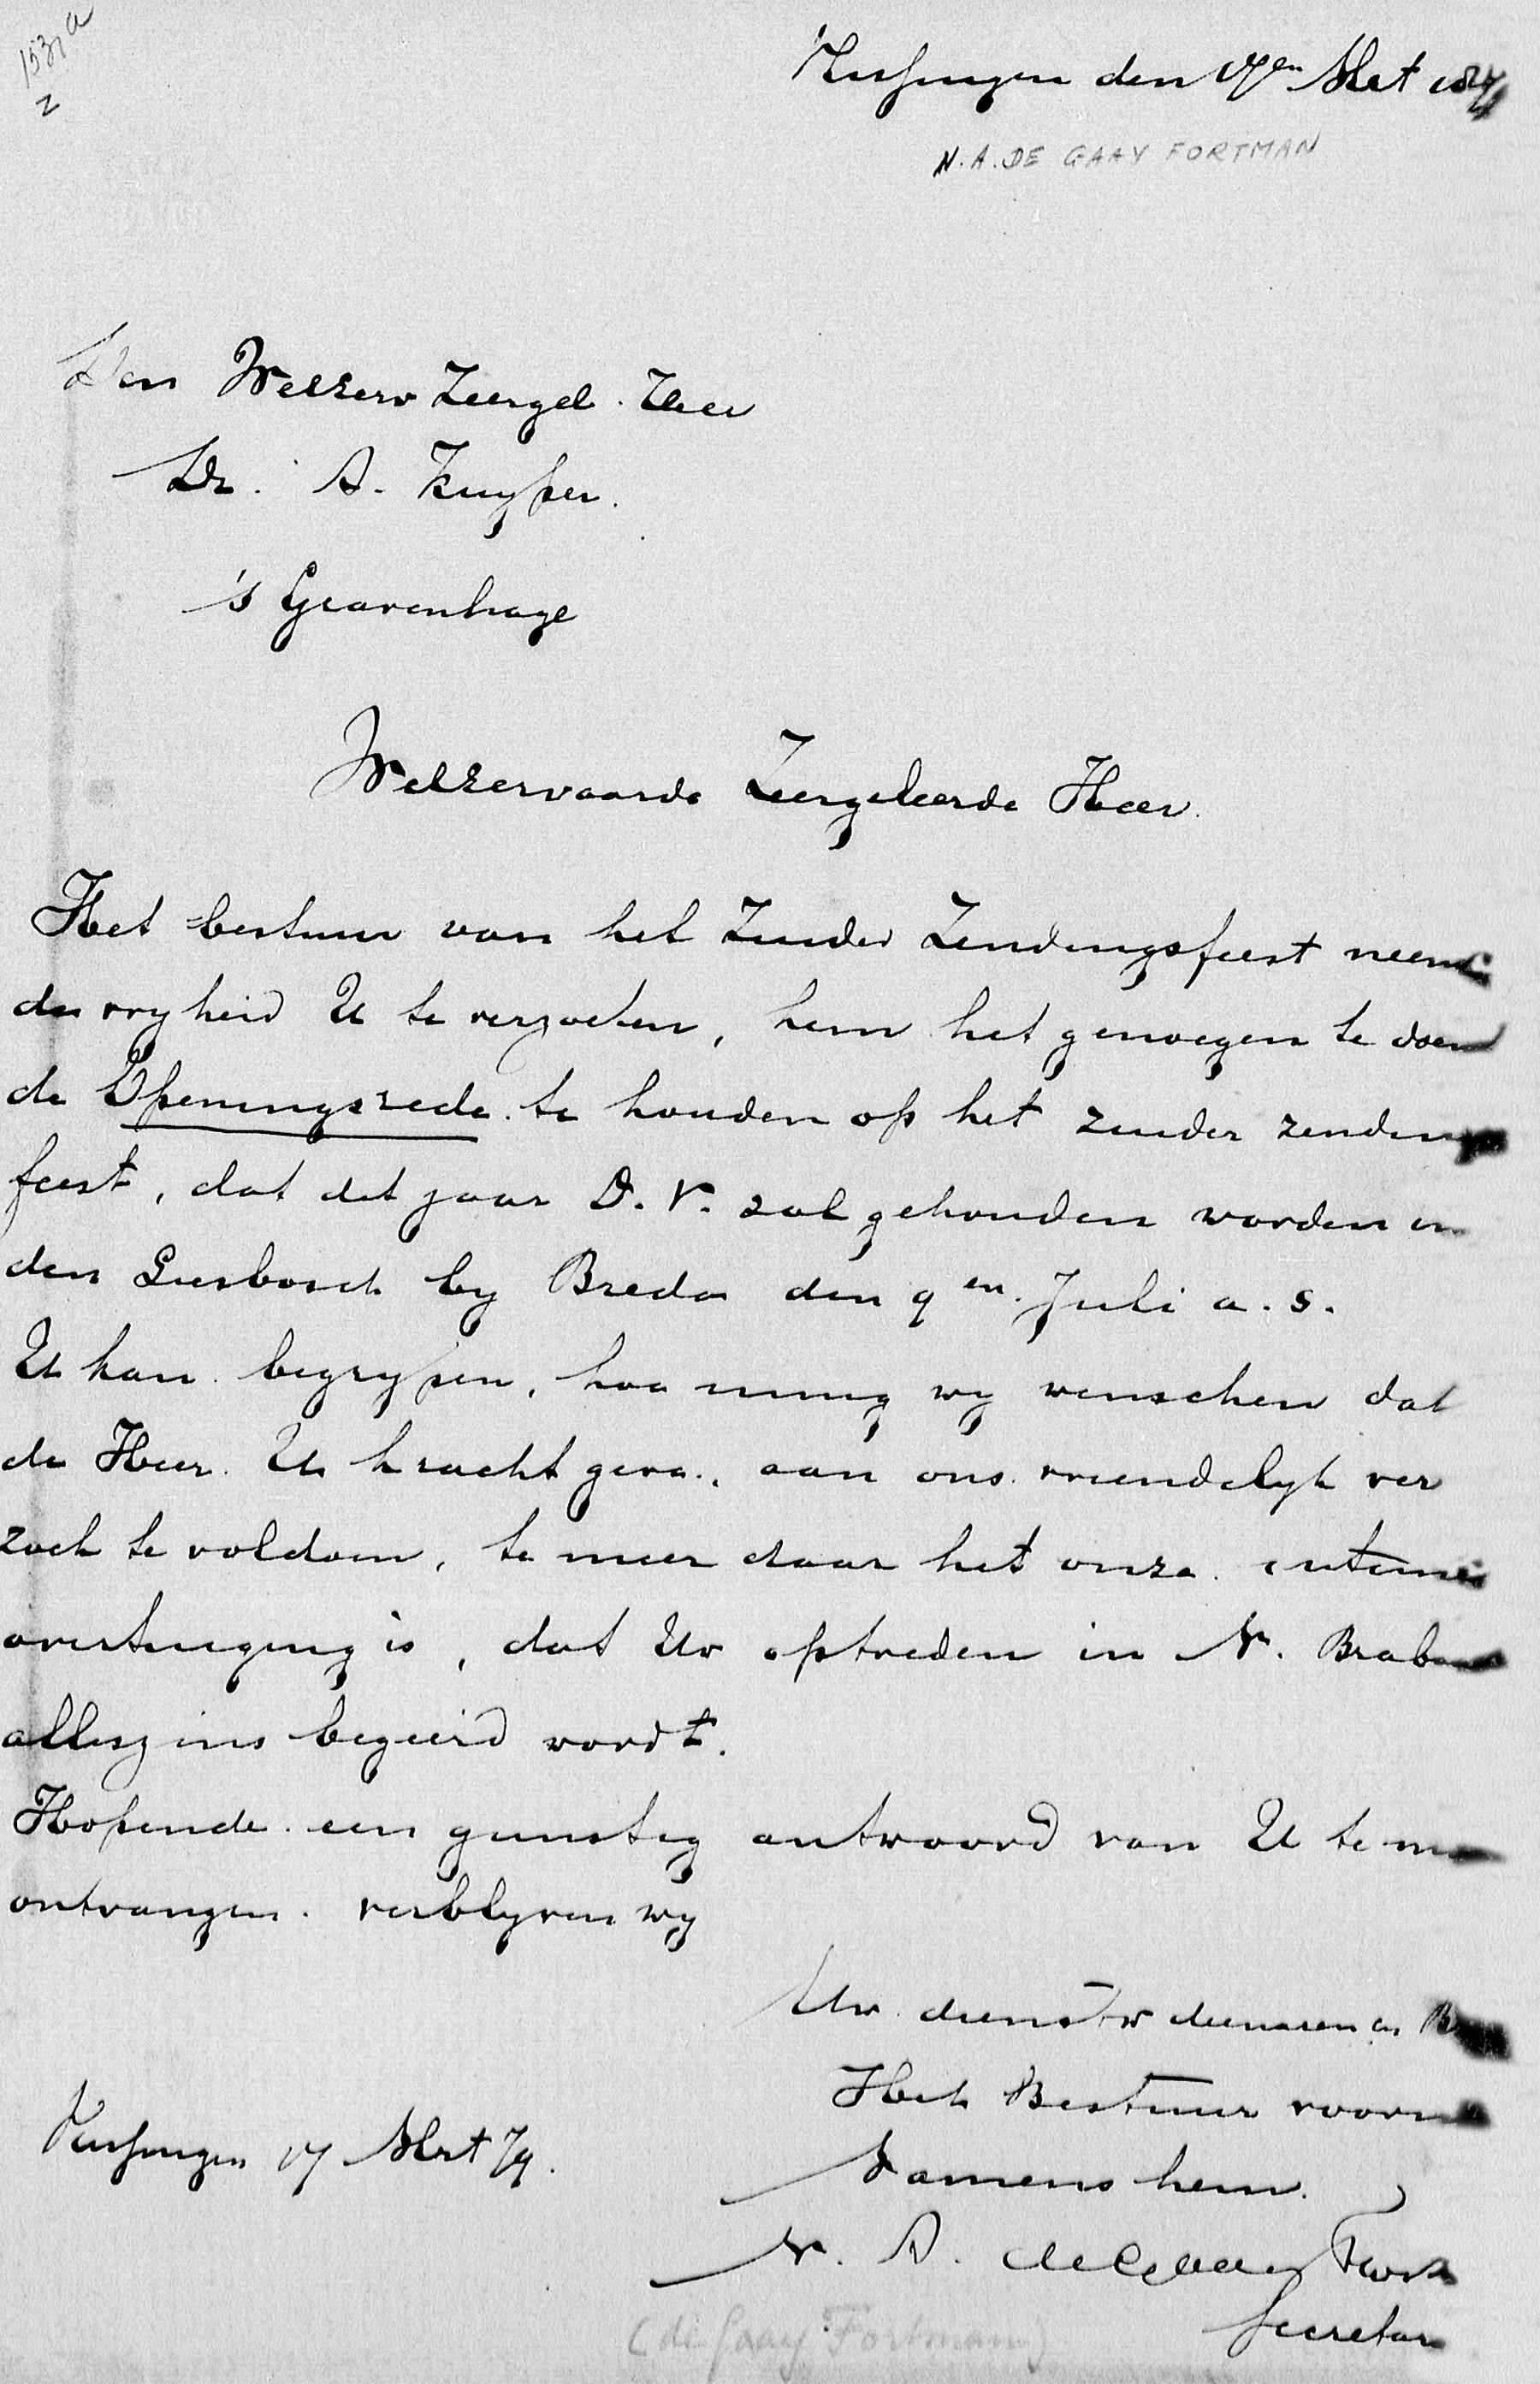 1531a
2
den 17en Mrt
N. A. DE GAAY FORTMAN
Den Weleerw Zeergel. Heer
Dr. A. Kuyper.
's Gravenhage
Weleerwaarde Zeergeleerde Heer.
Het bestuur van het Zuider Zendingsfeest neemt
de vryheid U te verzoeken, hem het genoegen te doen
de Openingsrede te houden op het zuider zendings
feest, dat dit jaar D. V. zal gehouden worden in
den Liesbosch by Breda den 9en Juli a. s.
U kan begrypen, hoe innig wy wenschen dat
de Heer U kracht geve, aan ons vriendelyk ver
zoek te voldoen, te meer daar het onze intieme
overtuiging is, dat Uw optreden in N. Braband
alleszins begeerd wordt.
Hopende een gunstig antwoord van U te
ontvangen verblyven wy
Uw dienstw dienaren en
Het Bestuur voorn
Namens hem.
17 Mrt 79.
N. A. de Gaay Fort
Secretar
(de Gaay Fortman)